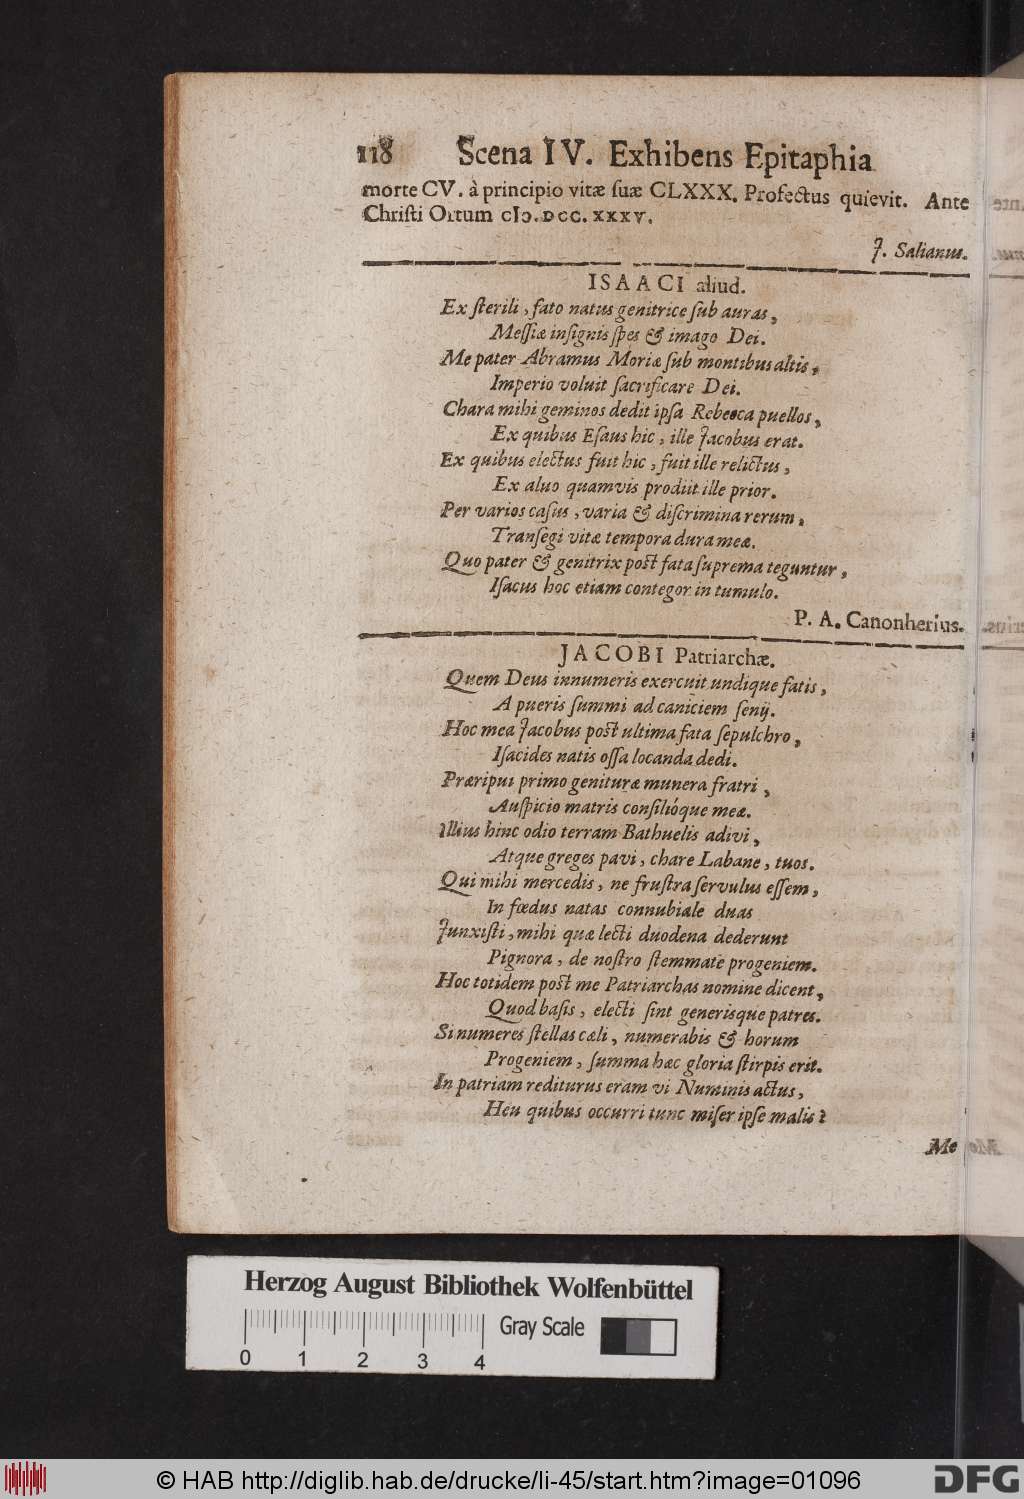 118 Scena IV. Exhibens Epitaphia
morte CV. à principio vitæ ſuæ CLXXX. Profectus quievit. Ante
Chriſti Ortum cIↄ.DCC.XXXV.
J. Salianus.
ISAACI aliud.
Ex ſterili, fato natus genitrice ſub auras,
Meſſiæ inſignis ſpes & imago Dei.
Me pater Abramus Moriæ ſub montibus altis,
Imperio voluit ſacrificare Dei.
Chara mihi geminos dedit ipſa Rebecca puellos,
Ex quibus Eſaus hic, ille Jacobus erat.
Ex quibus electus fuit hic, fuit ille relictus,
Ex aluo quamvis prodiit ille prior.
Per varios caſus, varia & diſcrimina rerum,
Tranſegi vitæ tempora dura meæ.
Quo pater & genitrix poſt fata ſuprema teguntur,
Iſacus hoc etiam contegor in tumulo.
P. A. Canonherius.
JACOBI Patriarchæ.
Quem Deus innumeris exercuit undique fatis,
A pueris ſummi ad caniciem ſenij.
Hoc mea Jacobus poſt ultima fata ſepulchro,
Iſacides natis oſſa locanda dedi.
Præripui primo genituræ munera fratri,
Auſpicio matris conſilióque meæ.
Illius hinc odio terram Bathuelis adivi,
Atque greges pavi, chare Labane, tuos.
Qui mihi mercedis, ne fruſtra ſervulus eſſem,
In fœdus natas connubiale duas
Junxiſti, mihi quæ lecti duodena dederunt
Pignora, de noſtro ſtemmate progeniem.
Hoc totidem poſt me Patriarchas nomine dicent,
Quod baſis, electi ſint generisque patres.
Si numeres ſtellas cæli, numerabis & horum
Progeniem, ſumma hæc gloria ſtirpis erit.
In patriam rediturus eram vi Numinis actus,
Heu quibus occurri tunc miſer ipſe malis?
Me
Herzog August Bibliothek Wolfenbüttel
Gray Scale
0 1 2 3 4
© HAB http://diglib.hab.de/drucke/li-45/start.htm?image=01096
DFG